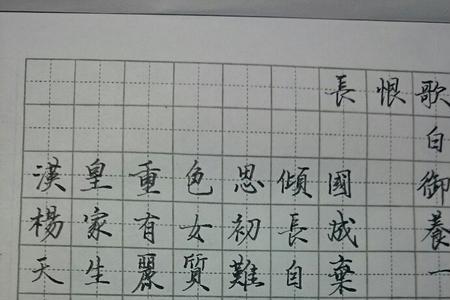 長恨歌
白
漢皇重色思傾國 御
楊家有女初長成 養
天生麗質難自棄 一